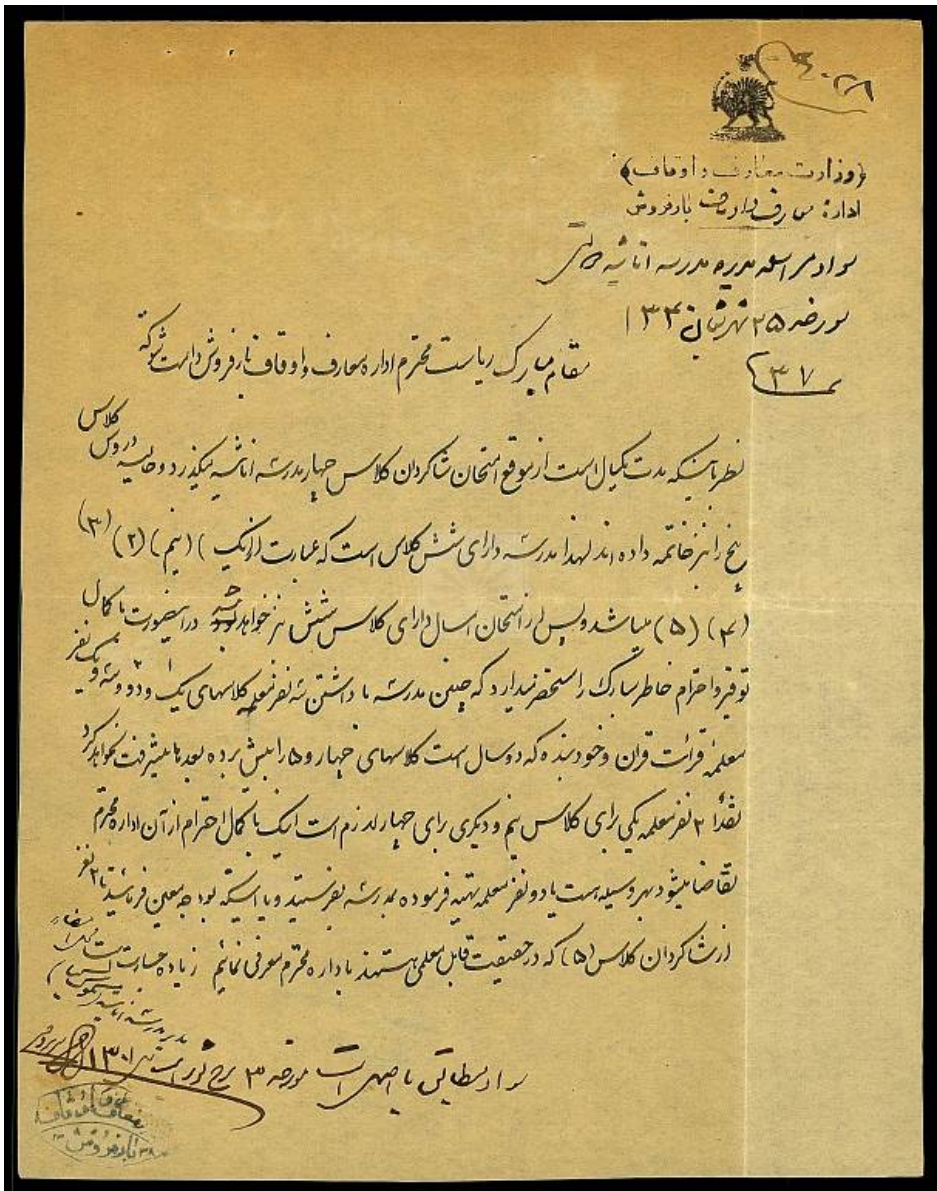 ﴿وزارت معارف و اوقاف﴾
اداره معارف بارفروش
سواد مراسله مدیره مدرسه اناثیه دولتی
مورخه ۲۵ شهر شعبان ۱۳۴۰
نمره ۳۷
مقام مبارک ریاست محترم اداره معارف و اوقاف بارفروش دامت شوکته
نظر باینکه مدت یکسال است از موقع امتحان شاگردان کلاس چهار مدرسه اناثیه میگذرد و حالیه دروس کلاس
پنج را نیز خاتمه داده اند لهذا مدرسه دارای شش کلاس است که عبارت از (یک) (نیم) (۲) (۳)
(۴) (۵) میباشد و پس از امتحان امسال دارای کلاس شش نیز خواهد شد در اینصورت با کمال
توقیر و احترام خاطر مبارک را مستحضر میدارد که چنین مدرسه با داشتن سه نفر معلمه کلاسهای یک و دو و سه و یک نفر
معلمه قرائت قرآن و خود بنده که دو سال است کلاسهای چهار و ۵ را پیش برده بعدها پیشرفت نخواهد کرد
نقداً ۲ نفر معلمه یکی برای کلاس نیم و دیگری برای چهار لازم است اینک با کمال احترام از آن اداره محترم
تقاضا میشود بهر وسیله هست یا دو نفر معلمه تهیه فرموده بمدرسه بفرستید و یا اینکه بودجه معین فرمائید تا ۲ نفر
از شاگردان کلاس (۵) که در حقیقت قابل معلمی هستند باداره محترم معرفی نمائیم زیاده جسارت است
محل امضاء
مدیره مدرسه اناثیه
سواد مطابق با اصل است مورخه ۳ برج ثور ۱۳۰۱